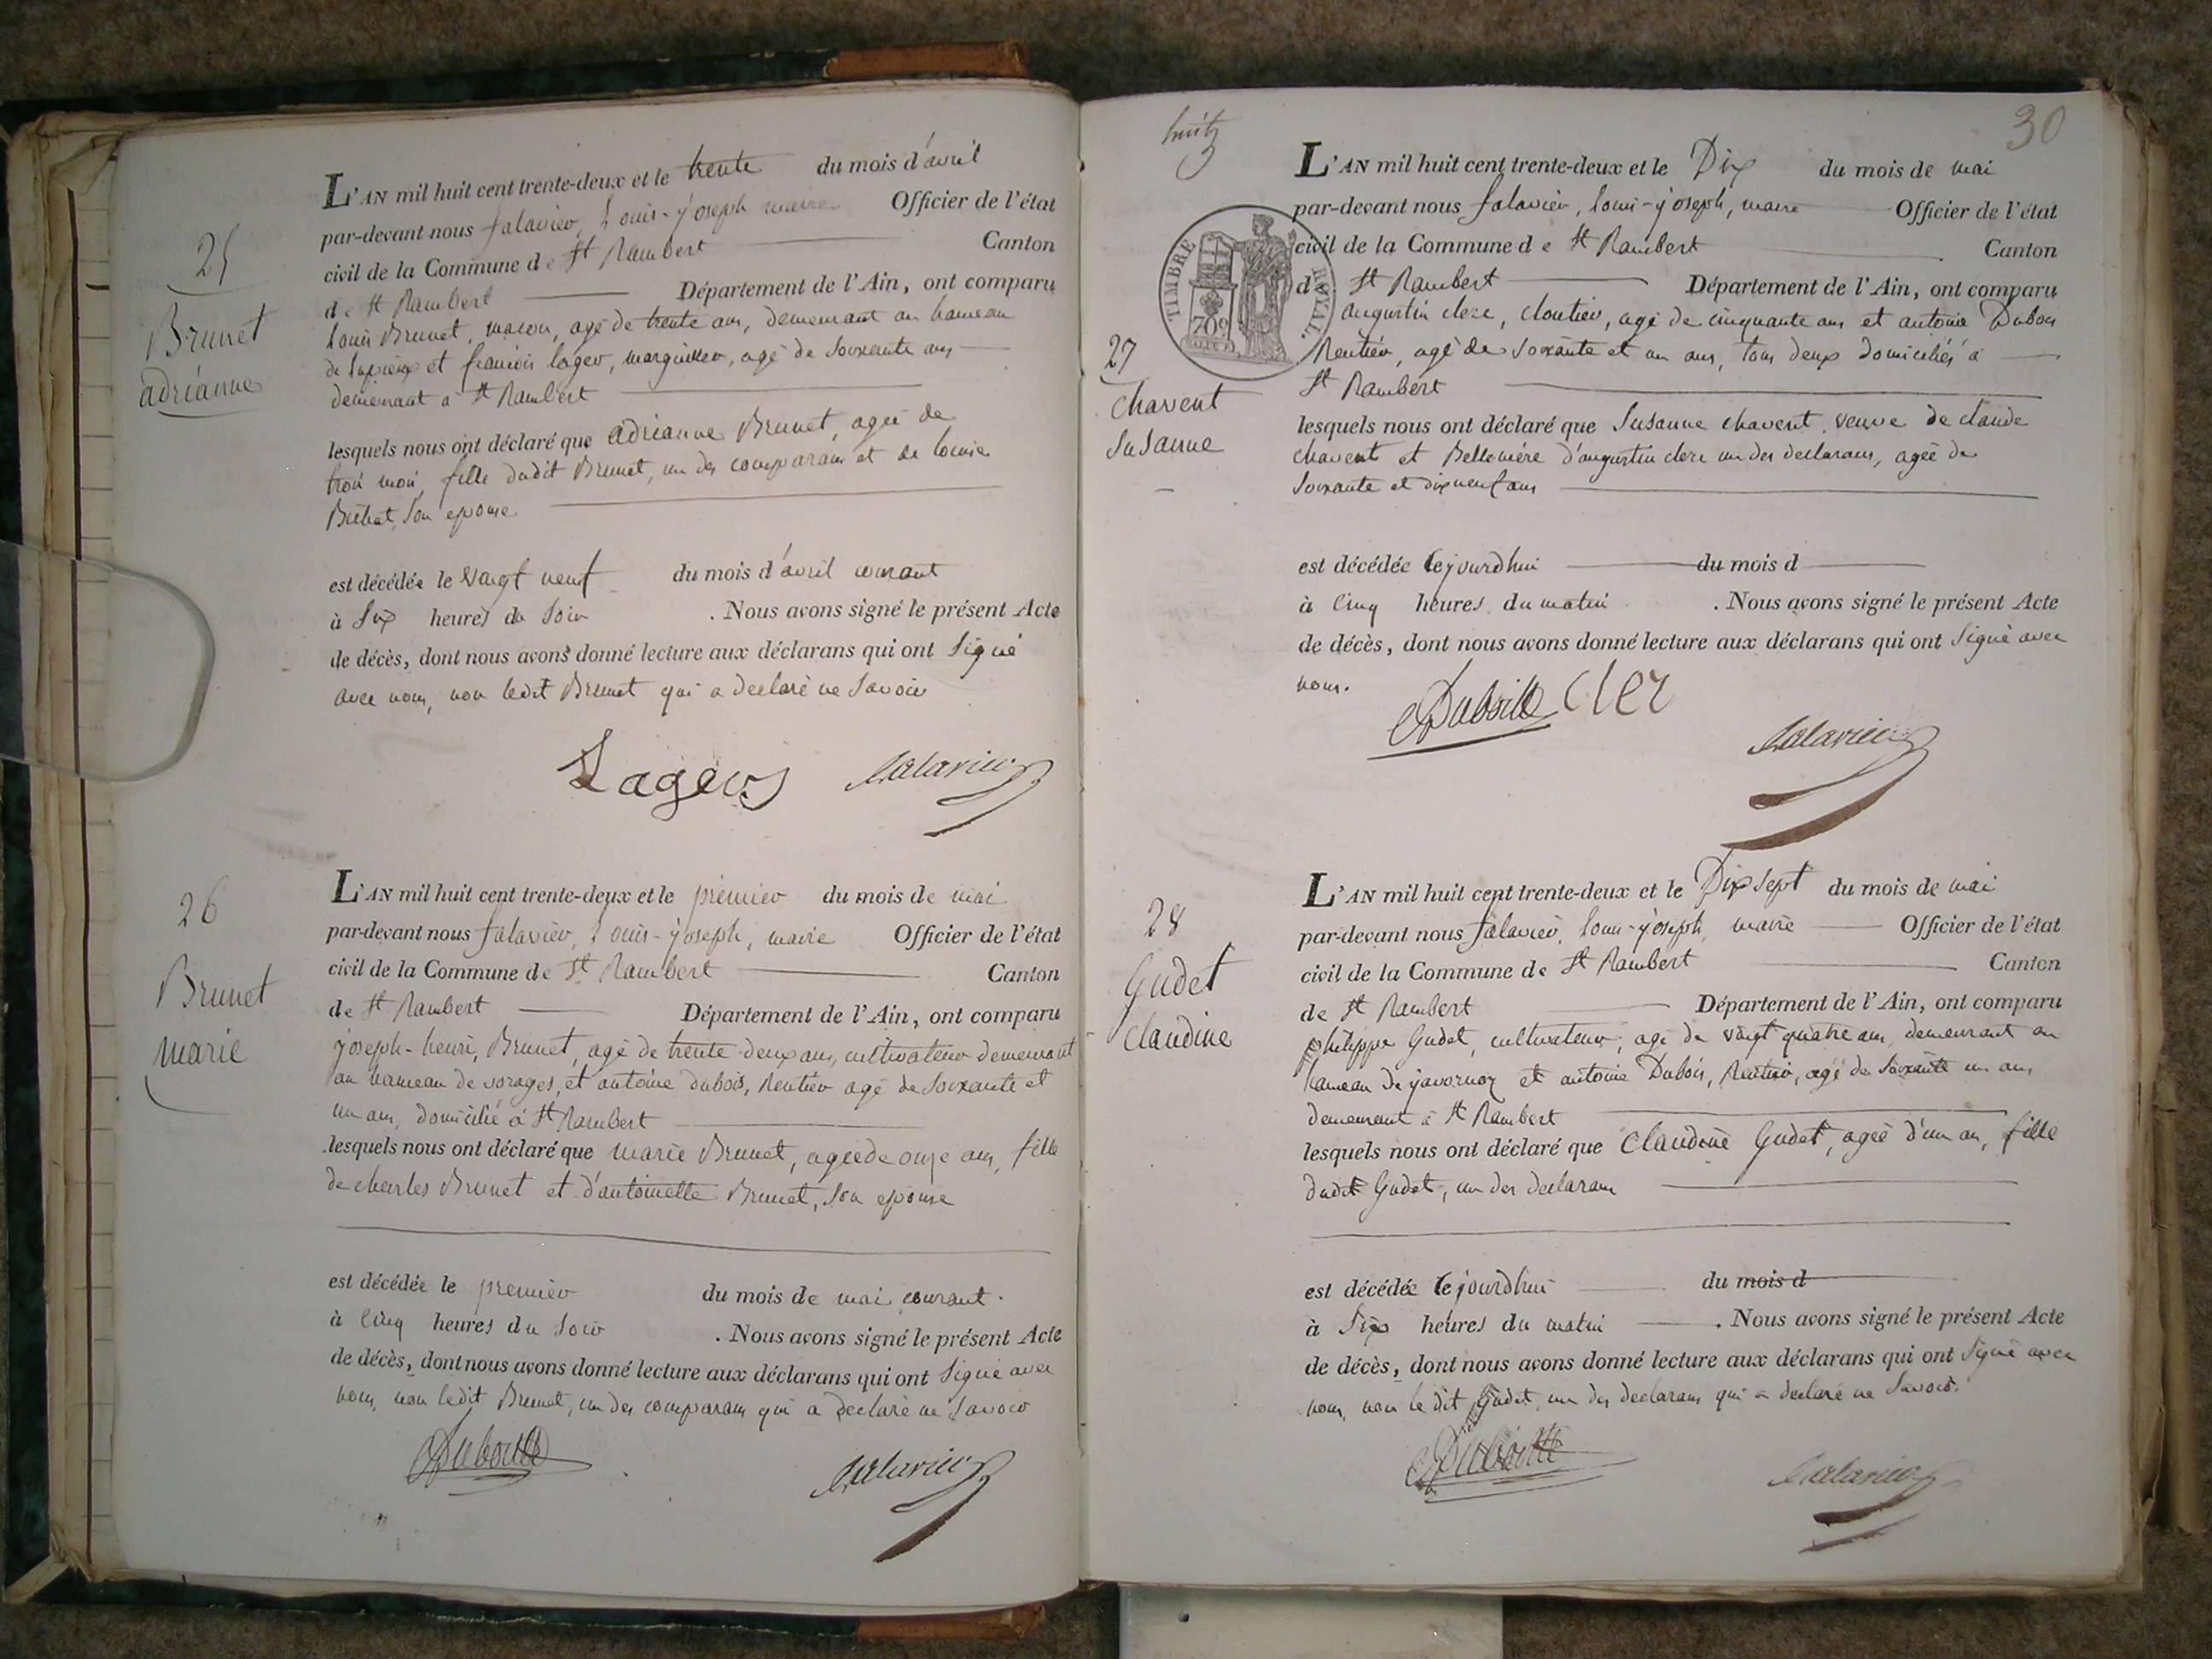 25
Brunet
adrianne
L'AN mil huit cent trente-deux et le trente du mois d'avril
par-devant nous falavier, Louis-joseph maire Officier de l'état
civil de la Commune de St Rambert Canton
de St Rambert Département de l'Ain, ont comparu
Louis Brunet, maçon, agé de trente ans, demeurant au hameau
de et francois lager, marguiller, agé de soixante ans
demeurant a St Rambert
lesquels nous ont déclaré que adrianne Brunet, ageé de
trois mois, fille dudit Brunet, un des comparans et de louise
son epouse
est décédée le vaigt neuf du mois d'avril courant
à six heures du soir . Nous avons signé le présent Acte
de décès, dont nous avons donné lecture aux déclarans qui ont signé
avec nous, non ledit Brunet qui a declaré ne savoir
Lagers
26
Brunet
marie
L'AN mil huit cent trente-deux et le premier du mois de mai
par-devant nous falavier, Louis-joseph, maire Officier de l'état
civil de la Commune de St Rambert Canton
de St Rambert Département de l'Ain, ont comparu
joseph-henri, Brunet, agé de trente deux ans, cultivateur demeurant
au hameau de vorages, et antoine dubois, Rentier agé de soixante et
un ans, domicilié à St Rambert
lesquels nous ont déclaré que marie Brunet, ageé de onze ans, fille
de charles Brunet et d'antoinette Brunet, son epouse
est décédée le premier du mois de mai courant.
à cinq heures du soir . Nous avons signé le présent Acte
de décès, dont nous avons donné lecture aux déclarans qui ont signé avec
nous, non ledit Brunet, un des comparans qui a declaré ne savoir
huit
30
TIMBRE ROYAL.
70c
27
Chavent
Susanne
L'AN mil huit cent trente-deux et le Dix du mois de mai
par-devant nous falavier, Louis-joseph, maire Officier de l'état
civil de la Commune de St Rambert Canton
de St Rambert Département de l'Ain, ont comparu
augustin clerc, cloutier, agé de cinquante ans et antoine Dubois
Rentier, agé de soixante et un ans, tous deux domiciliés à
St Rambert
lesquels nous ont déclaré que Susanne chavent, veuve de claude
chavent et Bellemére d'augustin clerc un des declarans, ageé de
soixante et dix neuf ans
est décédée cejourdhui du mois d
à cinq heures du matin . Nous avons signé le présent Acte
de décès, dont nous avons donné lecture aux déclarans qui ont signé avec
nous.
Cler
28
Gudet
Claudine
L'AN mil huit cent trente-deux et le Dix sept du mois de mai
par-devant nous falavier, Louis-joseph, maire Officier de l'état
civil de la Commune de St Rambert Canton
de St Rambert Département de l'Ain, ont comparu
philippe Gudet, cultivateur, agé de vaigt quatre ans, demeurant au
hameau de javornoz et antoine Dubois, Rentier, agé de soixante un ans
demeurant à St Rambert
lesquels nous ont déclaré que Claudine Gudet, ageé d'un an, fille
dudit Gudet, un des declarans
est décédée cejourdhui du mois d
à six heures du matin . Nous avons signé le présent Acte
de décès, dont nous avons donné lecture aux déclarans qui ont signé avec
nous, non le dit Gudet, un des declarans qui a declaré ne savoir.